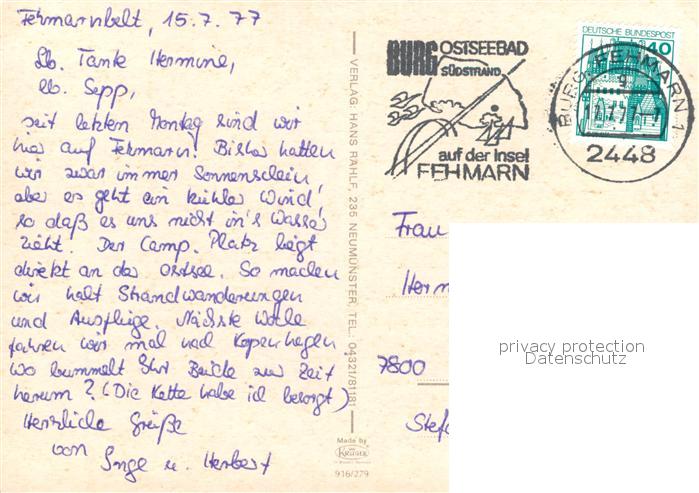 Fehmarnbelt, 15.7.77
Lb. Tante Hermine,
lb. Sepp,
seit letzten Montag sind wir
hier auf Fehmarn. Bisher hatten
wir zwar immer Sonnenschein,
aber es geht ein kühler Wind,
so daß es uns nicht in's Wasser
zieht. Der Camp. Platz liegt
direkt an der Ostsee. So machen
wir halt Strandwanderungen
und Ausflüge. Nächste Woche
fahren wir mal nach Kopenhagen
Wo bummelt Ihr Beide zur Zeit
herum? (Die Kette habe ich besorgt)
Herzliche Grüße
von Inge u. Herbert
VERLAG: HANS RAHLF, 235 NEUMÜNSTER, TEL.: 04321/81181
Made by
KRÜGER
916/279
BURG OSTSEEBAD
SÜDSTRAND
auf der Insel
FEHMARN
DEUTSCHE BUNDESPOST
40
BURG, FEHMARN 1
2448
Frau
Herm
7800
Stef
privacy protection
Datenschutz